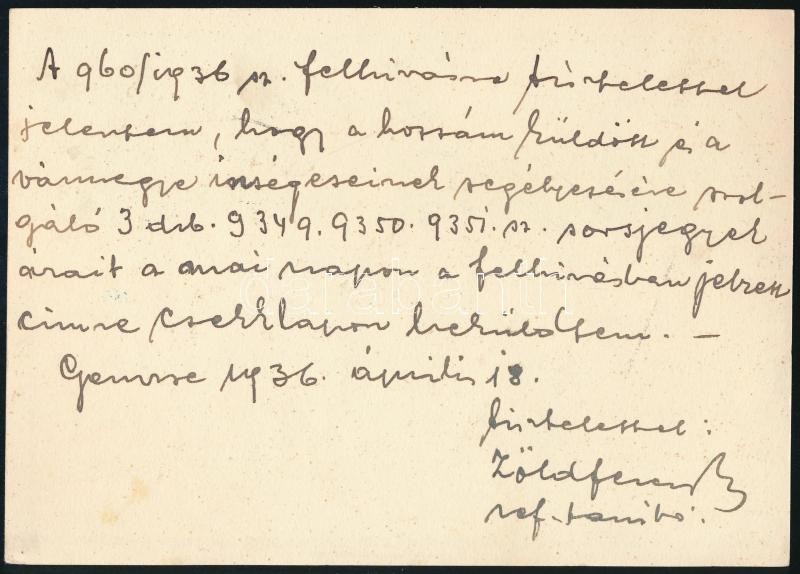 A 960/1936 sz. felhivásra tisztelettel
jelentem, hogy a hozzám küldött és a
vármegye inségeseinek segélyezésére szol-
gáló 3 drb. 9349. 9350. 9351. sz. sorsjegyek
árait a mai napon a felhivásban jelzett
cimre csekklapon beküldöttem. —
Gencse 1936. április 18.
tisztelettel:
Zöldferenc
ref. tanitó.
darabanth